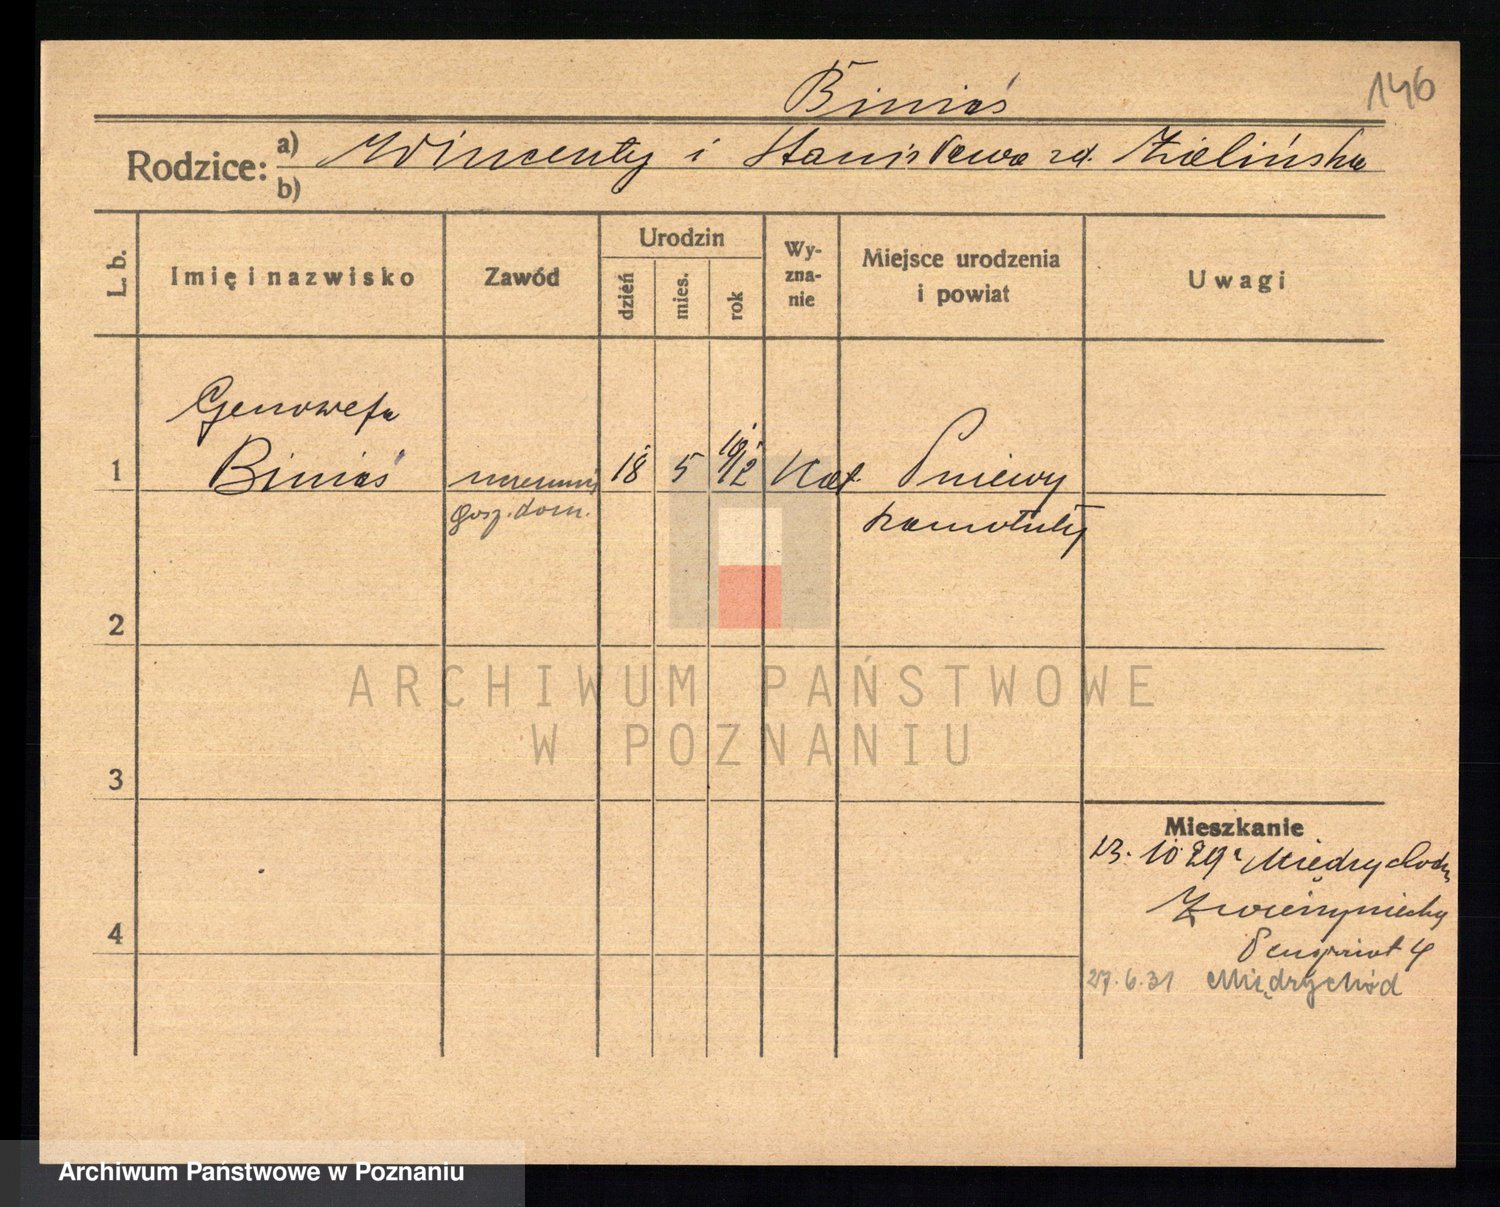 146
Biniaś
Rodzice: a) Wincenty i Stanisława zd. Zielińska
b)
L. b.
Imię i nazwisko
Zawód
Urodzin
dzień
mies.
rok
Wy-
zna-
nie
Miejsce urodzenia
i powiat
Uwagi
Genowefa
1 Biniaś 18 5 1912 Kat. Pniewy
gosp. dom. Szamotuły
2
3
4
Mieszkanie
23. 10 29 r Międzychodz
Zwierzyniecka
4
27. 6. 31 Międzychód
ARCHIWUM PAŃSTWOWE
W POZNANIU
Archiwum Państwowe w Poznaniu